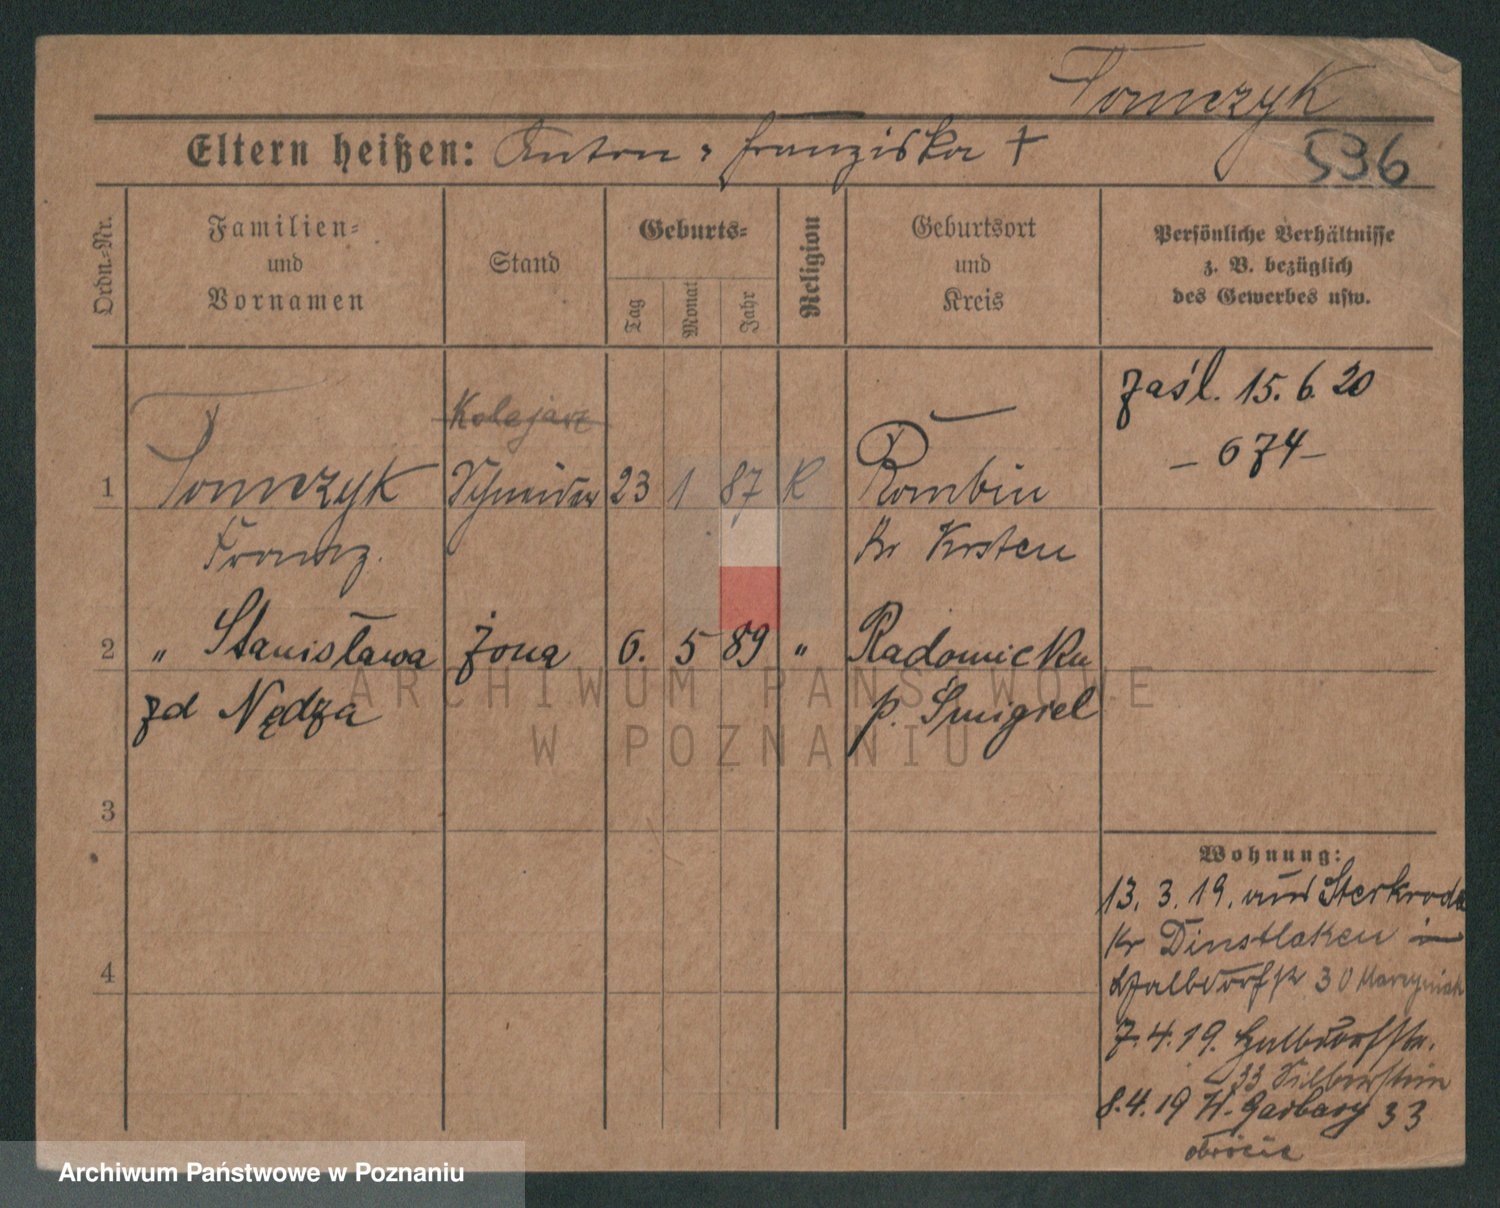 Tomczyk
Eltern heißen: Anton, Franziska +
536
Ordn.-Nr.
Familien-
und
Vornamen
Stand
Geburts-
Tag
Monat
Jahr
Religion
Geburtsort
und
Kreis
Persönliche Verhältnisse
z. B. bezüglich
des Gewerbes usw.
Kolejarz
1 Tomczyk Schneider 23 1 87 K Rombin
Franz. Kr Kosten
zaśl. 15.6.20
– 674 –
2 „ Stanisława żona 6. 5 89 „ Radomicku
zd Nędza p. Śmigiel
3
4
Wohnung:
13. 3. 19. aus Sterkrade
Kr Dinslaken in
Halbdorfstr 30
7.4.19. Halbdorfstr.
33 Silberstein
8.4.19 W. Garbary 33
obrócić
ARCHIWUM PAŃSTWOWE
W POZNANIU
Archiwum Państwowe w Poznaniu